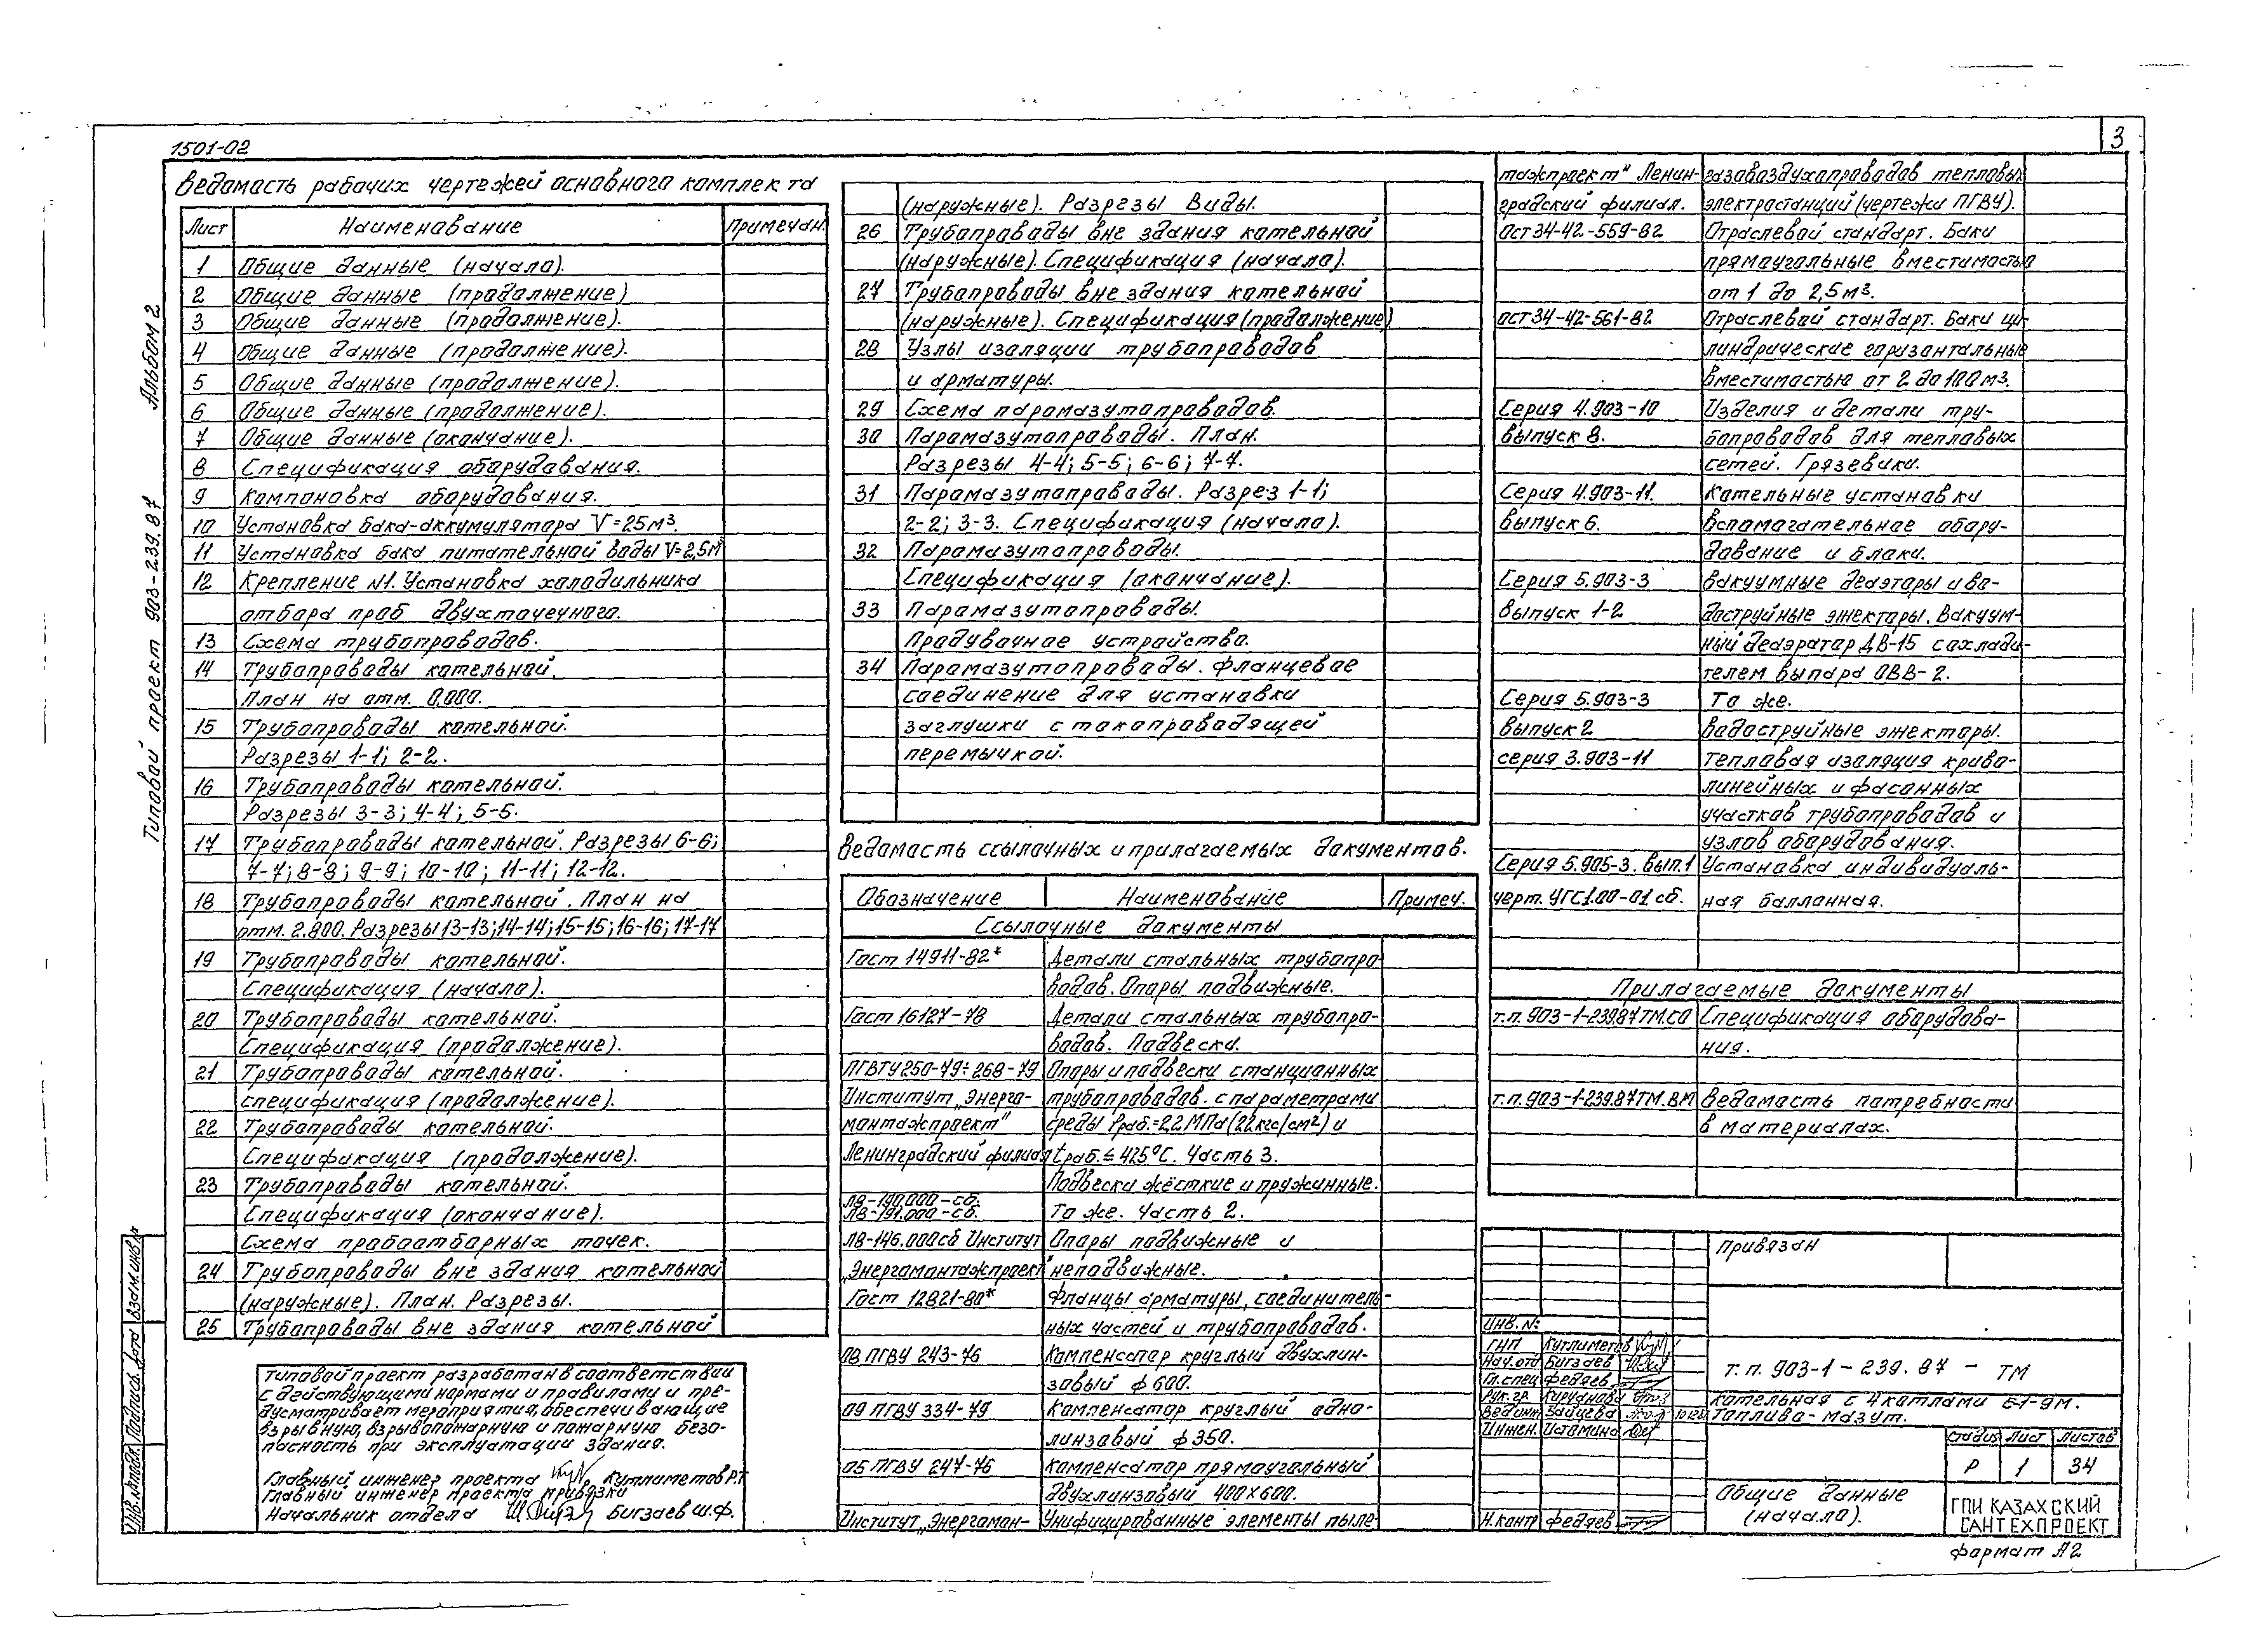 3
1501-02
Альбом 2
Типовой проект 903-1-239.87
Ведомость рабочих чертежей основного комплекта
Лист Наименование Примечан.
1 Общие данные (начало).
2 Общие данные (продолжение)
3 Общие данные (продолжение).
4 Общие данные (продолжение).
5 Общие данные (продолжение).
6 Общие данные (продолжение).
7 Общие данные (окончание).
8 Спецификация оборудования.
9 Компоновка оборудования.
10 Установка бака-аккумулятора V=25м³.
11 Установка бака питательной воды V=2,5м³
12 Крепление №1. Установка холодильника
отбора проб двухточечного.
13 Схема трубопроводов.
14 Трубопроводы котельной.
План на отм. 0,000.
15 Трубопроводы котельной.
Разрезы 1-1; 2-2.
16 Трубопроводы котельной.
Разрезы 3-3; 4-4; 5-5.
17 Трубопроводы котельной. Разрезы 6-6;
7-7; 8-8; 9-9; 10-10; 11-11; 12-12.
18 Трубопроводы котельной. План на
отм. 2.800. Разрезы 13-13; 14-14; 15-15; 16-16; 17-17
19 Трубопроводы котельной.
Спецификация (начало).
20 Трубопроводы котельной.
Спецификация (продолжение).
21 Трубопроводы котельной.
спецификация (продолжение).
22 Трубопроводы котельной.
Спецификация (продолжение).
23 Трубопроводы котельной.
Спецификация (окончание).
Схема пробоотборных точек.
24 Трубопроводы вне здания котельной
(наружные). План. Разрезы.
25 Трубопроводы вне здания котельной
(наружные). Разрезы Виды.
26 Трубопроводы вне здания котельной
(наружные). Спецификация (начало).
27 Трубопроводы вне здания котельной
(наружные). Спецификация (продолжение)
28 Узлы изоляции трубопроводов
и арматуры.
29 Схема паромазутопроводов.
30 Паромазутопроводы. План.
Разрезы 4-4; 5-5; 6-6; 7-7.
31 Паромазутопроводы. Разрез 1-1;
2-2; 3-3. Спецификация (начало).
32 Паромазутопроводы.
Спецификация (окончание).
33 Паромазутопроводы.
Продувочное устройство.
34 Паромазутопроводы. Фланцевое
соединение для установки
заглушки с токопроводящей
перемычкой.
Ведомость ссылочных и прилагаемых документов.
Обозначение Наименование Примеч.
Ссылочные документы
Гост 14911-82* Детали стальных трубопро
водов. Опоры подвижные.
Гост 16127-78 Детали стальных трубопро-
водов. Подвески.
ПГВТУ 250-79÷268-79 Опоры и подвески станционных
Институт „Энерго- трубопроводов. с параметрами
монтажпроект" среды Pраб.=2.2 МПа (22 кгс/см²) и
Ленинградский филиал tраб.≤ 425°С. Часть 3.
Подвески жёсткие и пружинные.
Л8-190.000-сб.
Л8-191.000-сб. То же. Часть 2.
Л8-146.000сб Институт Опоры подвижные и
„Энергомонтажпроект неподвижные.
Гост 12821-80* Фланцы арматуры, соединитель-
ных частей и трубопроводов.
08 ПГВУ 243-76 Компенсатор круглый двухлин-
зовый ф 600.
09 ПГВУ 334-79 Компенсатор круглый одно-
линзовый ф 350.
05 ПГВУ 247-76 Компенсатор прямоугольный
двухлинзовый 400х600.
Институт „Энергомон- Унифицированные элементы пыле-
тажпроект" Ленин- газовоздухопроводов тепловых
градский филиал. электростанций (чертежи ПГВУ).
ост 34-42-559-82 Отраслевой стандарт. Баки
прямоугольные вместимостью
от 1 до 2,5 м³.
ост 34-42-561-82 Отраслевой стандарт. Баки ци-
линдрические горизонтальные
вместимостью от 2 до 100 м³.
Серия 4.903-10 Изделия и детали тру-
выпуск 8. бопроводов для тепловых
сетей. Грязевики.
Серия 4.903-11. Котельные установки
выпуск 6. вспомогательное обору-
дование и блоки.
Серия 5.903-3 Вакуумные деаэторы и во-
выпуск 1-2 доструйные эжекторы. Вакуум-
ный деаэратор ДВ-15 с охлади-
телем выпара ОВВ-2.
Серия 5.903-3 То же.
выпуск 2 Водоструйные эжекторы.
серия 3.903-11 Тепловая изоляция криво-
линейных и фасонных
участков трубопроводов и
узлов оборудования.
Серия 5.905-3. вып.1 Установка индивидуаль-
черт. УГС1.00-01 сб. ная баллонная.
Прилагаемые документы
т.п. 903-1-239.87 ТМ.СО Спецификация оборудова-
ния.
т.п. 903-1-239.87 ТМ.ВМ Ведомость потребности
в материалах.
Типовой проект разработан в соответствии
с действующими нормами и правилами и пре-
дусматривает мероприятия, обеспечивающие
взрывную, взрывопожарную и пожарную безо-
пасность при эксплуатации здания.
Главный инженер проекта Кутлиметов Р.Т.
Главный инженер проекта привязки
Начальник отдела Бигзаев Ш.Ф.
Инв. № подл. Подпись и дата Взам. инв. №
Привязан
Инв. №:
ГИП Кутлиметов
Нач. отд Бигзаев
Гл. спец Федяев
Рук. гр.
Вед. инж Зайцева
Инжен. Истомина
Н. контр Федяев
т. п. 903-1-239.87 - ТМ
Котельная с 4 котлами Е-1-9М.
Топливо-мазут.
Стадия Лист Листов
Р 1 34
Общие данные
(начало).
ГПИ КАЗАХСКИЙ
САНТЕХПРОЕКТ
формат А2